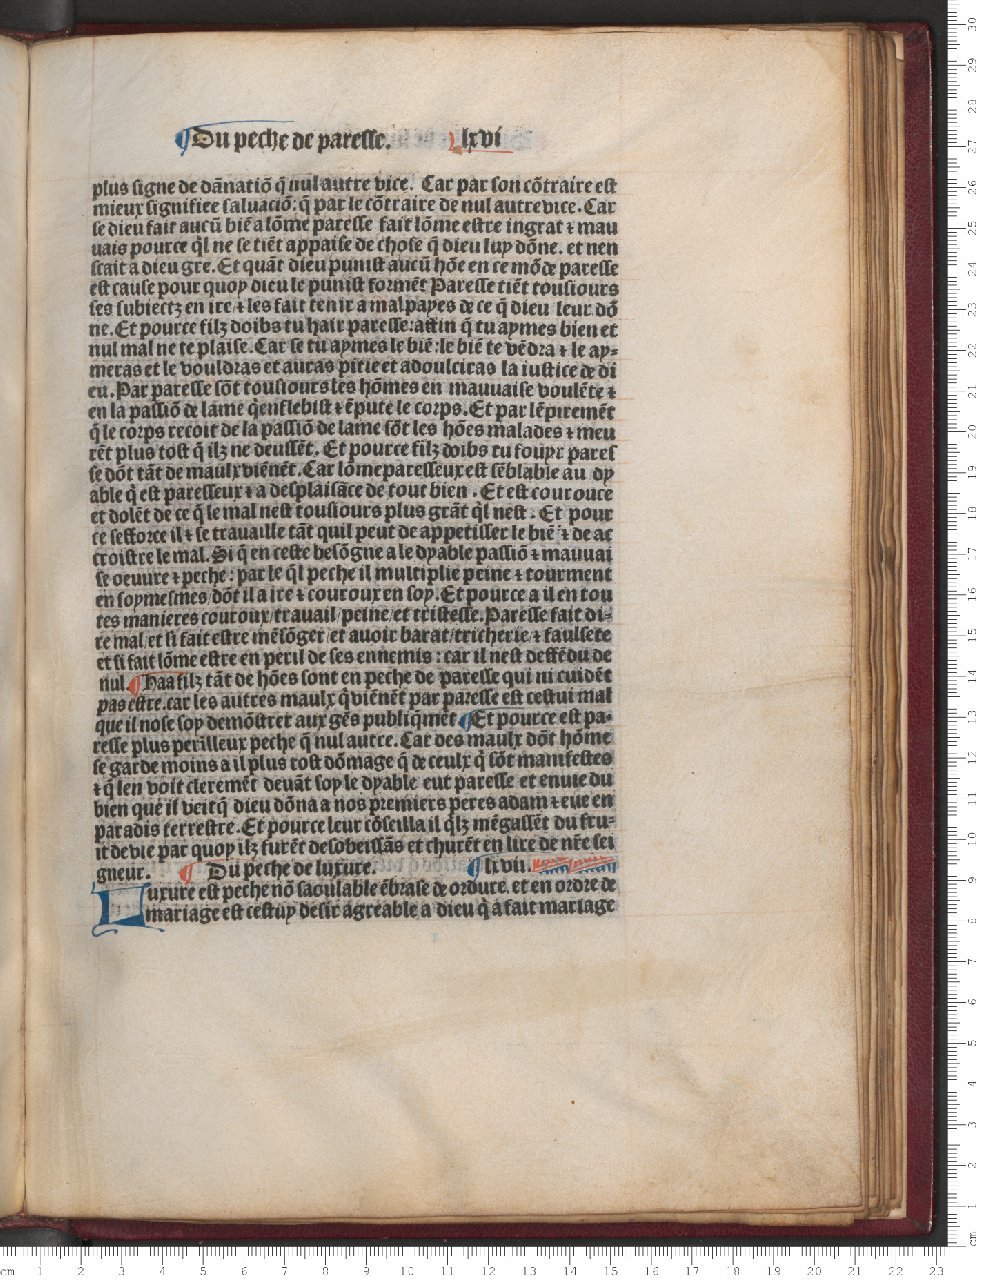 ¶Du peche de paresse. lxvi
plus signe de dãnatiõ q̃ nul autre vice. Car par son cõtraire est
mieux signifiee saluaciõ: q̃ par le cõtraire de nul autre vice. Car
se dieu fait aucũ biẽ a lõme paresse fait lõme estre ingrat ⁊ mau
uais pource q̃l ne se tiẽt appaise de chose q̃ dieu luy dõne. et nen
scait a dieu gre. Et quãt dieu punist aucũ hõe en ce mõde paresse
est cause pour quoy dieu le punist formẽt Paresse tiẽt tousiours
ses subiectz en ire/⁊ les fait tenir a mal payes de ce q̃ dieu leur dõ
ne. Et pource filz doibs tu hair paresse: affin q̃ tu aymes bien et
nul mal ne te plaise. Car se tu aymes le biẽ: le biẽ te vẽdra ⁊ le ay⸗
meras et le vouldras et auras pitie et adoulciras la iustice de di
eu. Par paresse sõt tousiours les hõmes en mauuaise voulẽte ⁊
en la passiõ de lame q̃ enflebist ⁊ ẽpute le corps. Et par lẽpiremẽt
q̃ le corps recoit de la passiõ de lame sõt les hões malades ⁊ meu
rẽt plus tost q̃ ilz ne deussẽt. Et pource filz doibs tu fouyr pares
se dõt tãt de maulx viẽnẽt. Car lõme paresseux est sẽblable au dy
able q̃ est paresseux ⁊ a desplaisãce de tout bien. Et est courouce
et dolẽt de ce q̃ le mal nest tousiours plus grãt q̃l nest. Et pour
ce sefforce il ⁊ se trauaille tãt quil peut de appetisser le biẽ ⁊ de ac
croistre le mal. Si q̃ en ceste besõgne a le dyable passiõ ⁊ mauuai
se oeuure ⁊ peche: par le q̃l peche il multiplie peine ⁊ tourment
en soymesmes, dõt il a ire ⁊ couroux en soy. Et pource a il en tou
tes manieres couroux/trauail/peine/et tristesse. Paresse fait di⸗
re mal/et si fait estre mẽsõger/et auoir barat/tricherie/⁊ faulsete
et si fait lõme estre en peril de ses ennemis: car il nest deffẽdu de
nul. ¶Haa filz tãt de hões sont en peche de paresse qui ni cuidẽt
pas estre. car les autres maulx q̃ viẽnẽt par paresse est cestui mal
que il nose soy demõstrer aux gẽs publiq̃mẽt ¶Et pource est pa⸗
resse plus perilleux peche q̃ nul autre. Car des maulx dõt hõme
se garde moins a il plus tost dõmage q̃ de ceulx q̃ sõt manifestes
⁊ q̃ len voit cleremẽt deuãt soy le dyable eut paresse et enuie du
bien que il veit q̃ dieu dõna a nos premiers peres adam ⁊ eue en
paradis terrestre. Et pource leur cõseilla il q̃lz mẽgassẽt du fru⸗
it de vie par quoy ilz furẽt desobeissãs et churẽt en lire de nr̃e sei
gneur. ¶ Du peche de luxure. ¶ lxvii.
Luxure est peche nõ saoulable ẽbrase de ordure. et en ordre de
mariage est cestuy desir agreable a dieu q̃ a fait mariage